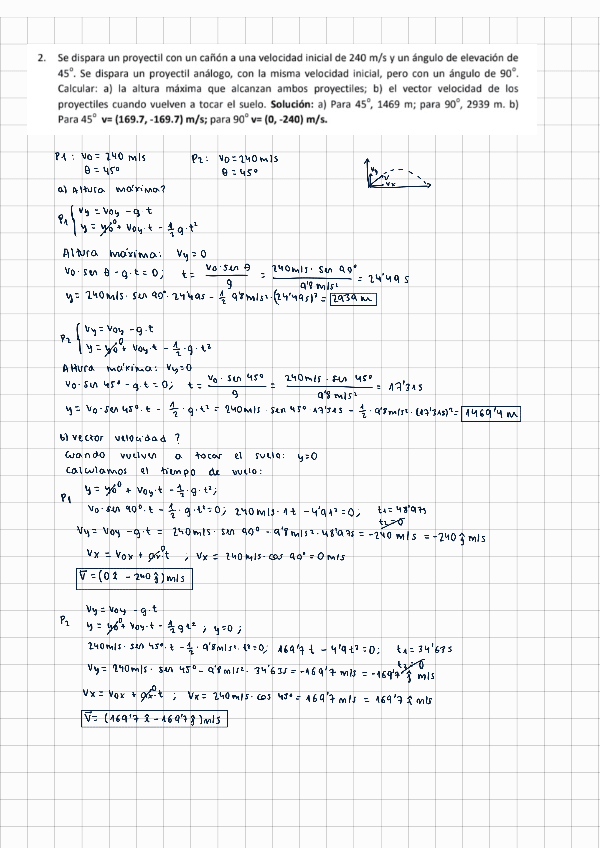 2. Se dispara un proyectil con un cañón a una velocidad inicial de 240 m/s y un ángulo de elevación de
45°. Se dispara un proyectil análogo, con la misma velocidad inicial, pero con un ángulo de 90°.
Calcular: a) la altura máxima que alcanzan ambos proyectiles; b) el vector velocidad de los
proyectiles cuando vuelven a tocar el suelo. Solución: a) Para 45°, 1469 m; para 90°, 2939 m. b)
Para 45° v= (169.7, -169.7) m/s; para 90° v= (0, -240) m/s.
P1: v0 = 240 m/s P2: v0 = 240 m/s
θ = 45º θ = 45º
vy v
vx
a) Altura máxima?
P1 { vy = voy - g t
y = y0⁰ + voy·t - 1/2 g·t²
Altura máxima: vy = 0
v0·sen θ - g·t = 0; t = v0·sen θ / g = 240m/s·sen 90º / 9'8 m/s² = 24'49 s
y = 240m/s·sen 90º·24'49s - 1/2 9'8m/s²·(24'49s)² = 2939 m
P2 { vy = voy - g·t
y = y0⁰ + voy·t - 1/2 g·t²
Altura máxima: vy = 0
v0·sen 45º - g·t = 0; t = v0·sen 45º / g = 240m/s·sen 45º / 9'8m/s² = 17'31s
y = v0·sen 45º·t - 1/2·g·t² = 240m/s·sen 45º 17'31s - 1/2·9'8m/s²·(17'31s)² = 1469'4 m
b) vector velocidad?
Cuando vuelven a tocar el suelo: y=0
Calculamos el tiempo de vuelo:
P1 y = y0⁰ + voy·t - 1/2 g·t²;
v0·sen 90º·t - 1/2·g·t² = 0; 240m/s·1t - 4'9t² = 0; t1 = 48'97s
t2 = 0
vy = voy - g·t = 240m/s·sen 90º - 9'8m/s²·48'97s = -240 m/s = -240 ĵ m/s
vx = vox + gx⁰·t, vx = 240m/s·cos 90º = 0 m/s
v⃗ = (0 î - 240 ĵ) m/s
P2 vy = voy - g·t
y = y0⁰ + voy·t - 1/2 g t²; y=0;
240m/s·sen 45º·t - 1/2·9'8m/s²·t² = 0; 169'7 t - 4'9t² = 0; t1 = 34'63s
t2 = 0
vy = 240m/s·sen 45º - 9'8m/s²·34'63s = -169'7 m/s = -169'7 ĵ m/s
vx = vox + gx⁰·t; vx = 240m/s·cos 45º = 169'7 m/s = 169'7 î m/s
v⃗ = (169'7 î - 169'7 ĵ) m/s